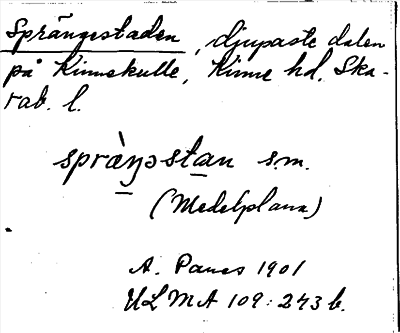 Sprängestaden, djupaste dalen
på Kinnekulle, Kinne hd, Ska-
rab. l.
spràŋəstan s.m.
(Medelplana)
A. Panes 1901
ULMA 109:243 b.